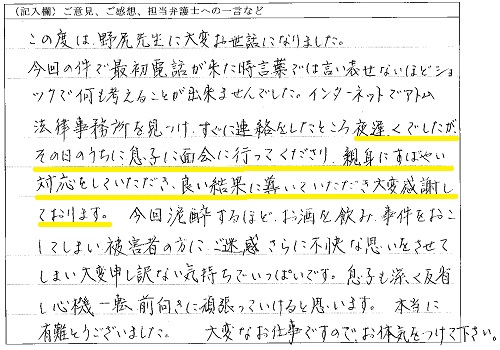 (記入欄) ご意見、ご感想、担当弁護士への一言など
この度は、野尻先生に大変お世話になりました。
今回の件で最初電話が来た時言葉では言い表せないほどショ
ックで何も考えることが出来ませんでした。インターネットでアトム
法律事務所を見つけ、すぐに連絡をしたところ夜遅くでしたが、
その日のうちに息子に面会に行ってくださり、親身にすばやい
対応をしていただき、良い結果に導いていただき大変感謝し
ております。 今回泥酔するほど、お酒を飲み、事件をおこ
してしまい被害者の方にご迷惑さらに不快な思いをさせて
しまい大変申し訳ない気持ちでいっぱいです。息子も深く反省
し心機一転、前向きに頑張っていけると思います。 本当に
有難とうございました。 大変なお仕事ですので、お体気をつけて下さい。